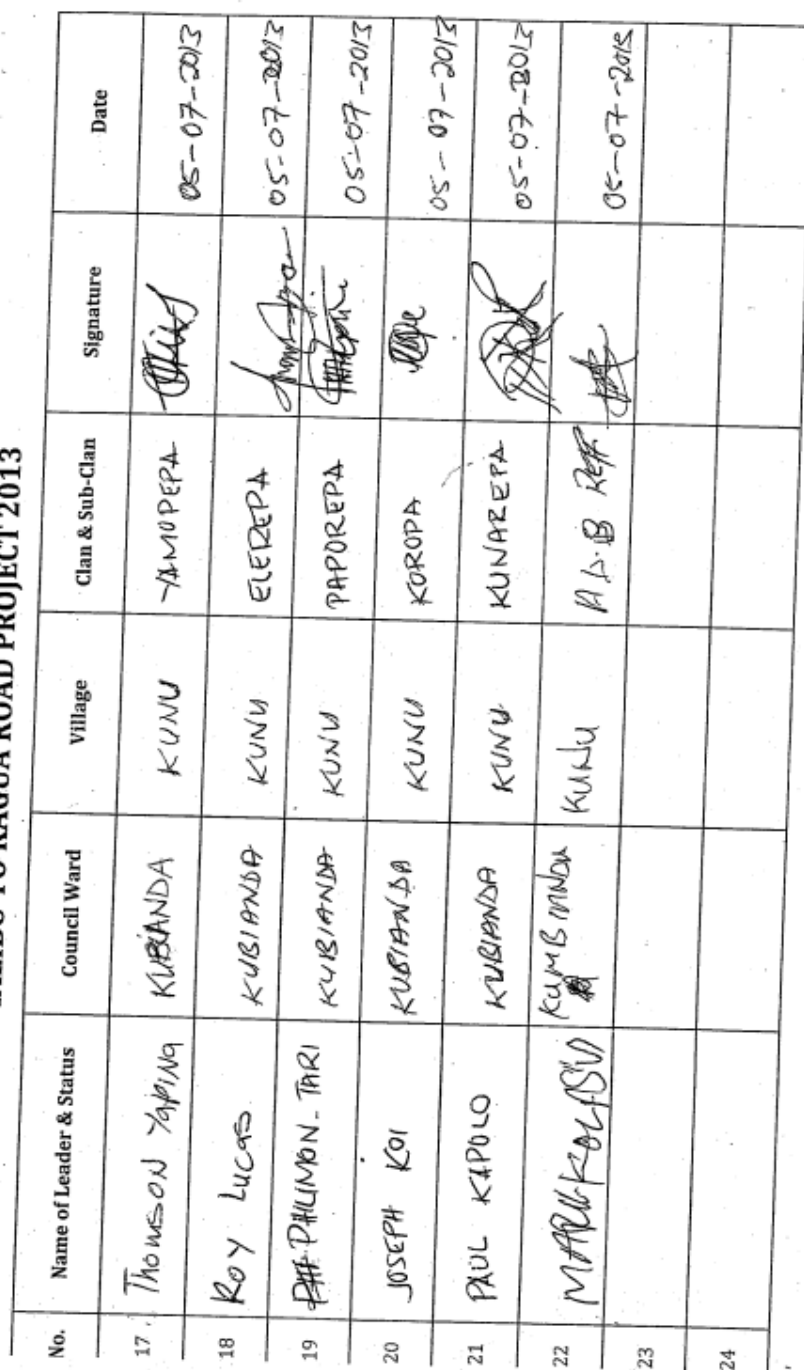 TO KAGUA ROAD PROJECT 2013
No. Name of Leader & Status Council Ward Village Clan & Sub-Clan Signature Date
17 Thomson Yaping KUBIANDA KUNU YAMOPEPA 05-07-2013
18 ROY LUCAS KUBIANDA KUNU ELEREPA 05-07-2013
19 PHILIMON. TARI KUBIANDA KUNU PAPOREPA 05-07-2013
20 JOSEPH KOI KUBIANDA KUNU KOROPA 05-07-2013
21 PAUL KAPOLO KUBIANDA KUNU KUNAREPA 05-07-2013
22 KUNU 05-07-2013
23
24